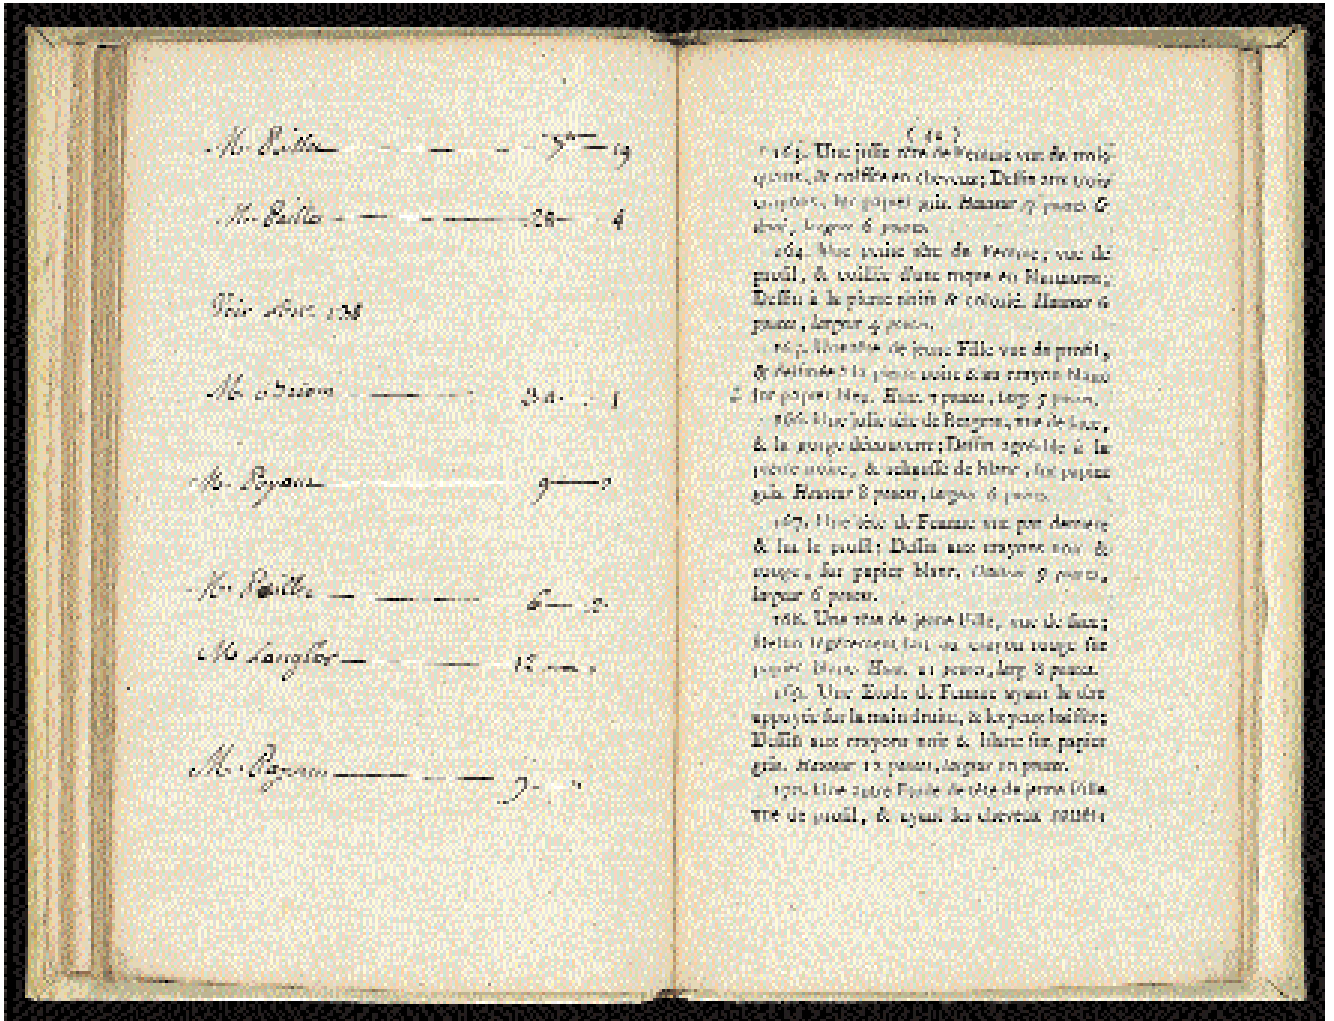 M. Paillet 7 19
M. Paillet 20 4
Voir 138
M. 1
M. 9
M. Paillet 6
M. Langlier 12
M. 9
163. Une jolie tête de Femme vue de trois
quarts, & coiffée en cheveux; Dessin aux trois
crayons, sur papier gris. Hauteur pouces &
demi, largeur 6 pouces.
164. Une petite tête de Femme, vue de
profil, & coiffée d'une toque en Hauteur;
Dessin à la pierre noire & colorié. Hauteur 6
pouces, largeur 4 pouces.
165. Une tête de jeune Fille vue de profil,
& dessinée à la pierre noire & au crayon blanc
sur papier bleu. Haut. 7 pouces, larg. 5 pouces.
166. Une jolie tête de Bergere, vue de face,
& la gorge découverte; Dessin agréable à la
pierre noire, & rehaussé de blanc, sur papier
gris. Hauteur 8 pouces, largeur 6 pouces.
167. Une tête de Femme vue par derriere
& sur le profil; Dessin aux crayons noir &
rouge, sur papier blanc. Hauteur 9 pouces,
largeur 6 pouces.
168. Une tête de jeune Fille, vue de face;
Dessin légérement fait au crayon rouge sur
papier blanc. Haut. 11 pouces, larg. 8 pouces.
169. Une Etude de Femme ayant la tête
appuyée sur la main droite, & les yeux baissés;
Dessin aux crayons noir & blanc sur papier
gris. Hauteur 12 pouces, largeur 10 pouces.
170. Une autre Etude de tête de jeune Fille
vue de profil, & ayant les cheveux nattés